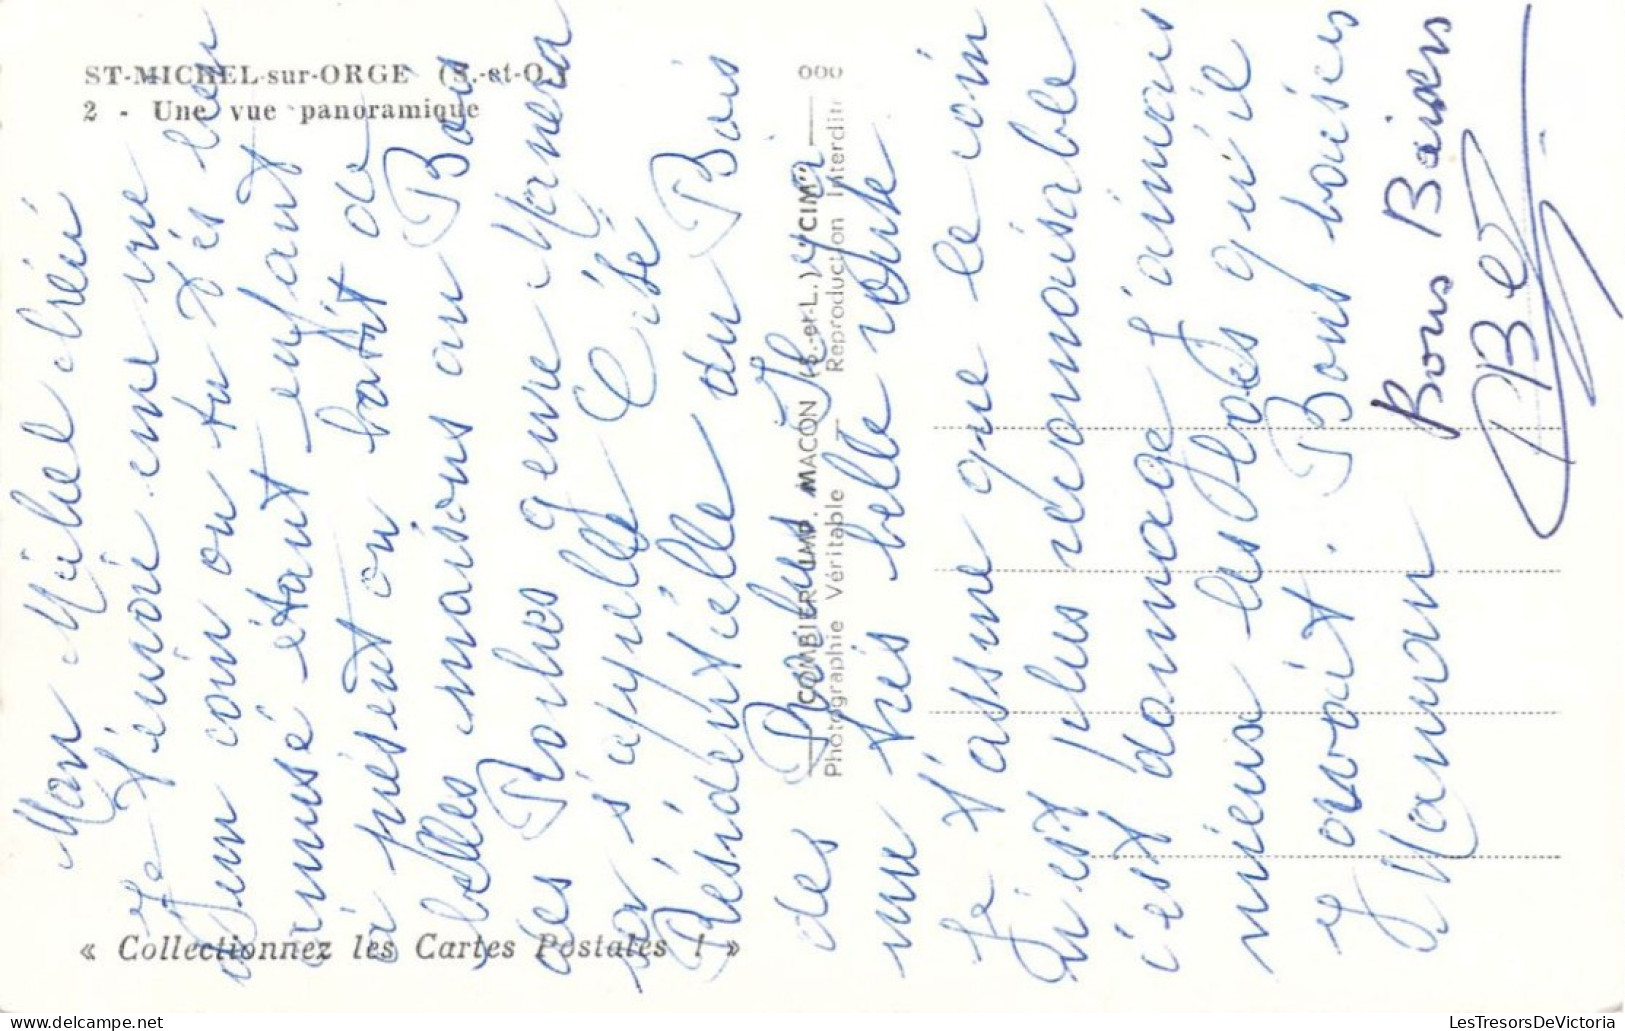 ST-MICHEL-sur-ORGE (S.-et-O.)
2 - Une vue panoramique
000
COMBIER IMP. MACON (S.-et-L.) "CIM"
Photographie Véritable - Reproduction Interdite
« Collectionnez les Cartes Postales ! »
Mon Michel chéri
Je t'envoi une vue
d'un coin ou tu t'es bien
amusé étant enfant
à présent on batit de
belles maisons au Bois
des Roches genre
sa s'appelle Cité
Résidentielle du Bois
des Roches Il y a
une très belle route
Je t'assure que le coin
n'est plus réconnaisable
c'est dommage J'aimais
mieux les Bois qu'il
y avait. Bons baisers
Maman
Bons Baisers
LesTresorsDeVictoria